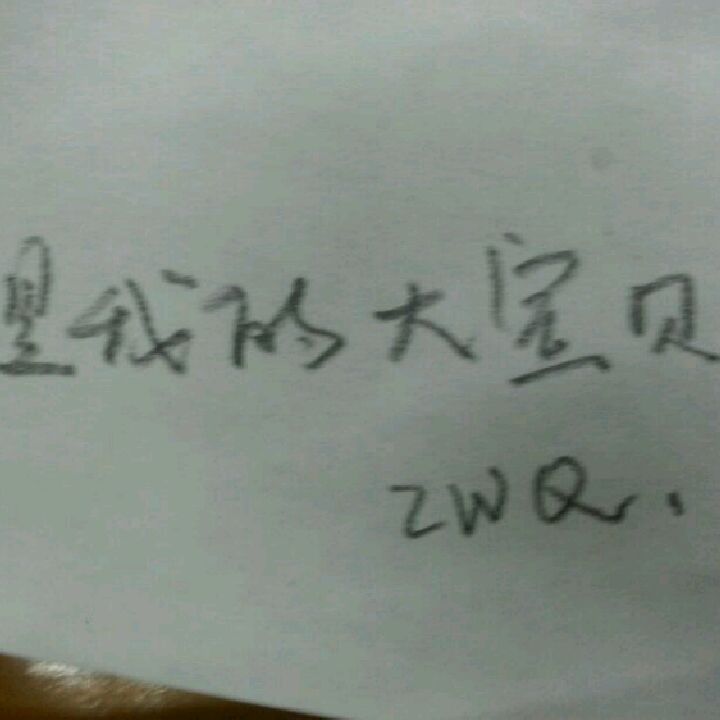 我的大宝贝
ZWQ.